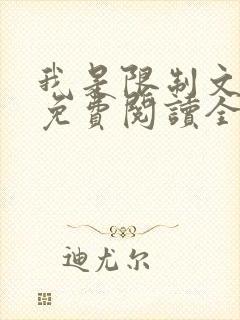 我是限制文
免費閱讀全
迪尤尔